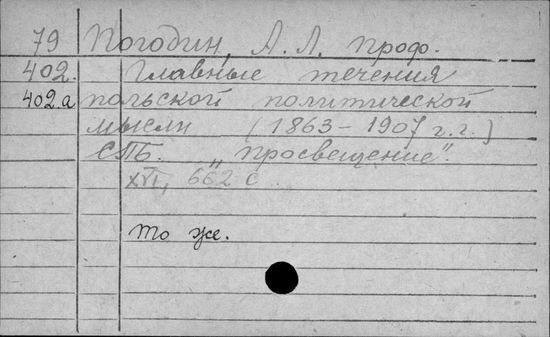 79 Погодин, А. Л. проф.
402. Главные течения
402.а польской политической
мысли (1863-1907 г.г.)
СПБ. „Просвещение".
XVI, 662 с.
То же.